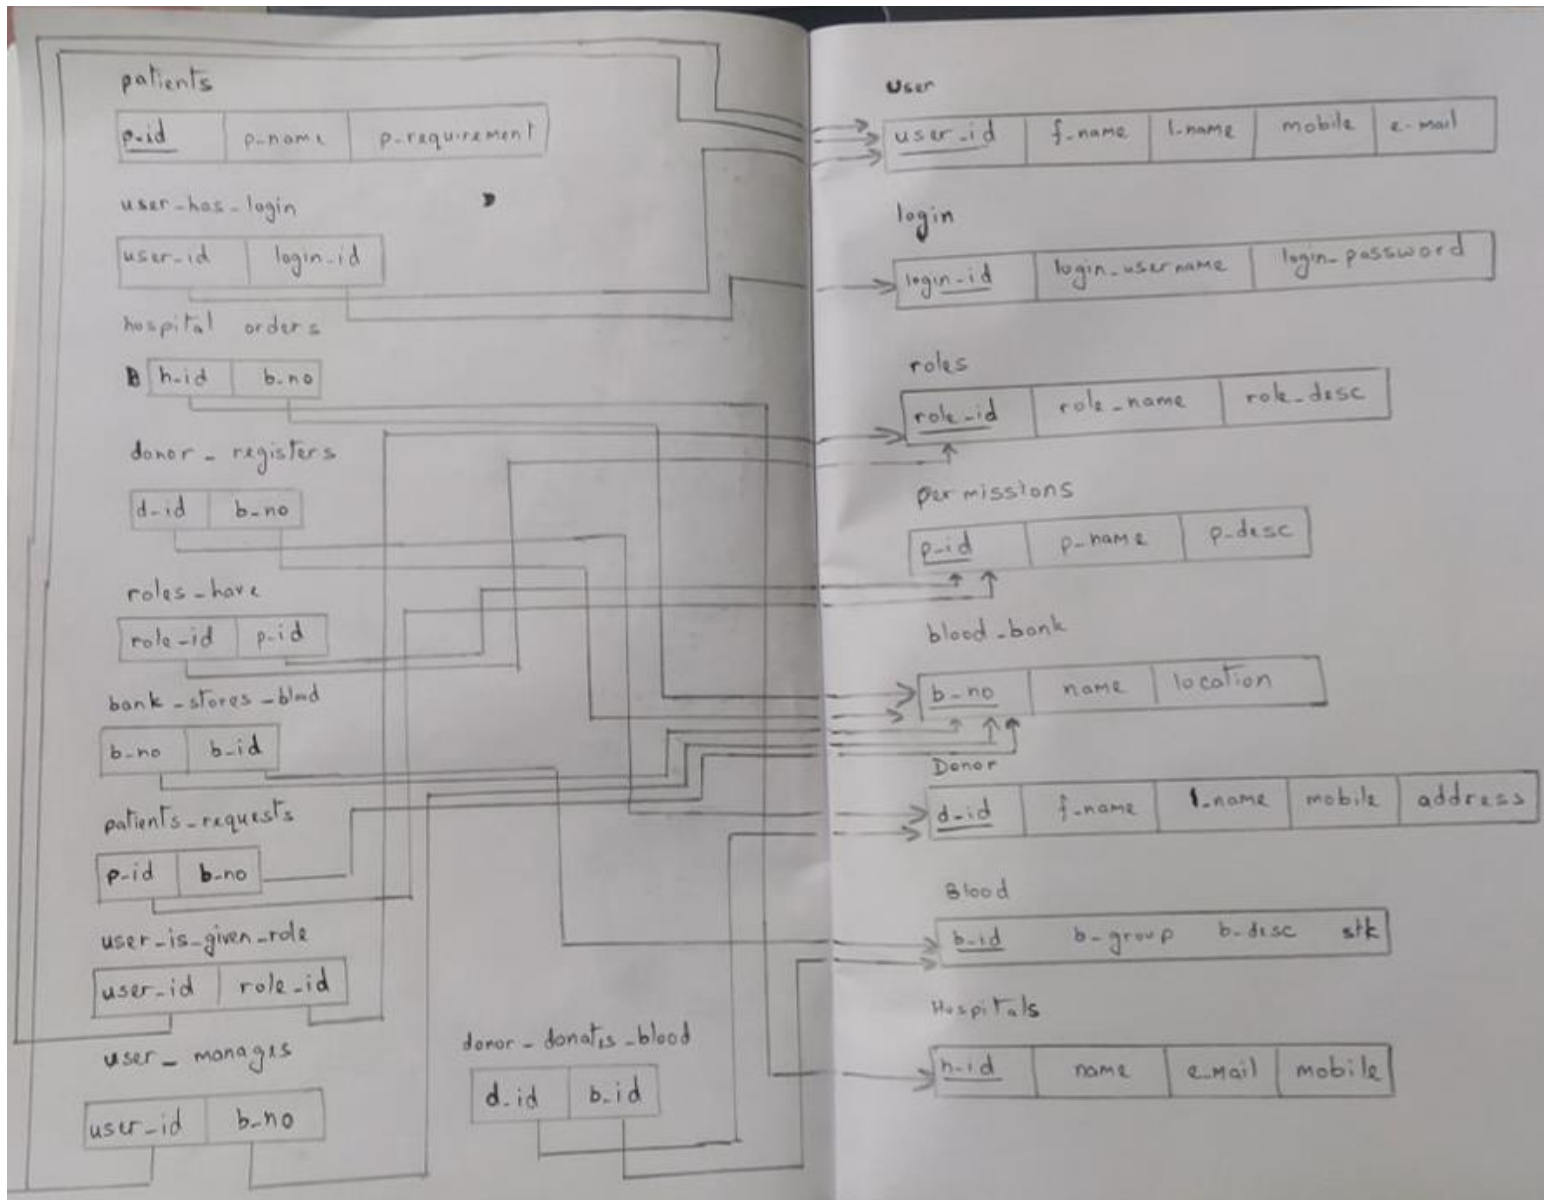 patients
p-id p-name p-requirement
user-has-login
user-id login-id
hospital orders
h-id b-no
donor - registers
d-id b-no
roles-have
role-id p-id
bank-stores-blood
b-no b-id
patients-requests
p-id b-no
user-is-given-role
user-id role-id
user- manages
user-id b-no
donor-donates-blood
d-id b-id
user
user-id f-name l-name mobile e-mail
login
login-id login-username login-password
roles
role-id role-name role-desc
permissions
p-id p-name p-desc
blood-bank
b-no name location
Donor
d-id f-name l-name mobile address
Blood
b-id b-group b-desc stk
Hospitals
h-id name e-mail mobile